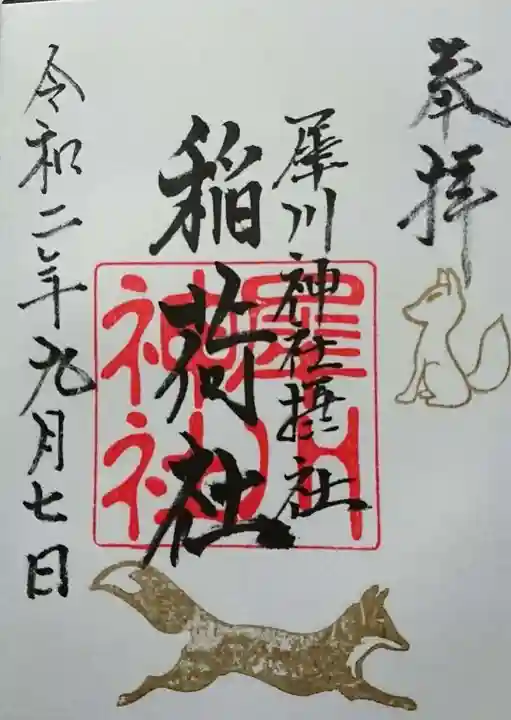 奉拝
犀川神社摂社
稲荷社
令和二年九月七日
犀川
神社